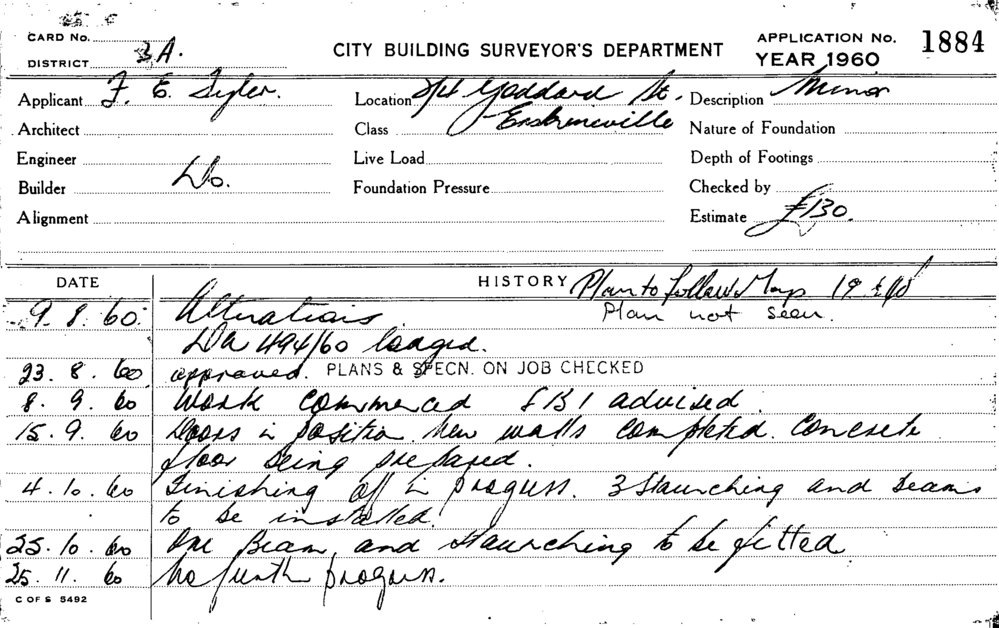 CARD No. CITY BUILDING SURVEYOR'S DEPARTMENT APPLICATION No. 1884
DISTRICT 3A. YEAR 1960
Applicant F. E. Location Goddard St. Description Minor
Erskineville
Architect Class Nature of Foundation
Engineer Live Load Depth of Footings
Builder Do. Foundation Pressure Checked by
Alignment Estimate £130.
DATE HISTORY Plan to follow
9. 8. 60. Alterations Plan not seen.
DA 494/60 lodged.
23. 8. 60 approved. PLANS & SPECN. ON JOB CHECKED
8. 9. 60 Work commenced advised.
15. 9. 60 Doors in position. New walls completed. Concrete
floor being prepared.
4. 10. 60 Finishing off in progress. 3 Staunching and beams
to be installed.
25. 10. 60 One Beam and staunching to be fitted
25. 11. 60 No furth progress.
C OF S 5492